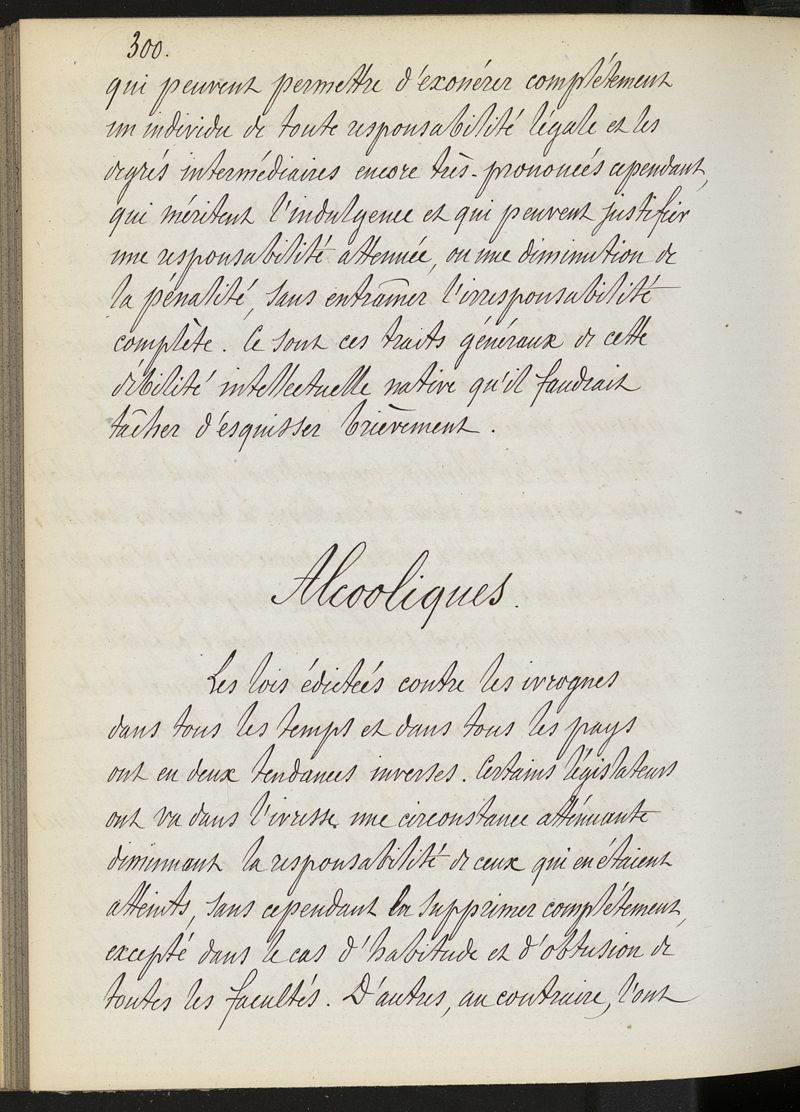 300.
qui peuvent permettre d'exonérer complétement
un individu de toute responsabilité légale et les
degrés intermédiaires encore très-prononcés cependant,
qui méritent l'indulgence et qui peuvent justifier
une responsabilité atténuée, ou une diminution de
la pénalité, sans entraîner l'irresponsabilité
complète. Ce sont ces traits généraux de cette
débilité intellectuelle native qu'il faudrait
tâcher d'esquisser brièvement.
Alcooliques.
Les lois édictées contre les ivrognes
dans tous les temps et dans tous les pays
ont eu deux tendances inverses. Certains législateurs
ont vu dans l'ivresse une circonstance atténuante
diminuant la responsabilité de ceux qui en étaient
atteints, sans cependant la supprimer complétement,
excepté dans le cas d'habitude et d'obtusion de
toutes les facultés. D'autres, au contraire, l'ont